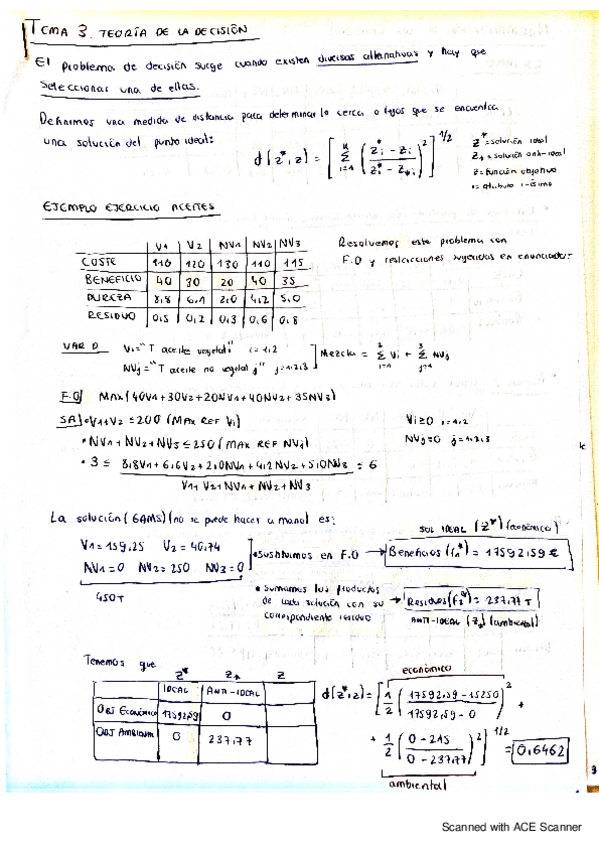 TEMA 3. TEORÍA DE LA DECISIÓN
El problema de decisión surge cuando existen diversas alternativas y hay que
seleccionar una de ellas.
Definimos una medida de distancia para determinar lo cerca o lejos que se encuentra
una solución del punto ideal:
d(z*, z) = [ Σ i=1 K ( (z*i - zi) / (z*i - z*i) )² ]^1/2
z* = solución ideal
z* = solución anti-ideal
z = función objetivo
i = atributo i-ésimo
EJEMPLO EJERCICIO ACEITES
V1 V2 NV1 NV2 NV3
COSTE 110 120 130 110 115
BENEFICIO 40 30 20 40 35
DUREZA 8,8 6,1 2,0 4,2 5,0
RESIDUO 0,5 0,2 0,3 0,6 0,8
Resolvemos este problema con
F.O y restricciones sugeridas en enunciado:
VAR D Vi = "T aceite vegetal i" i=1,2
NVj = "T aceite no vegetal j" j=1,2,3
Mezcla = Σ i=1 2 Vi + Σ j=1 3 NVj
F.O] MAX (40V1 + 30V2 + 20NV1 + 40NV2 + 35NV3)
SA] • V1+V2 ≤ 200 (MAX REF Vi)
• NV1 + NV2 + NV3 ≤ 250 (MAX REF NVj)
• 3 ≤ (8,8V1 + 6,6V2 + 2,0NV1 + 4,2NV2 + 5,0NV3) / (V1+V2+NV1+NV2+NV3) = 6
Vi ≥ 0 i=1,2
NVj=0 j=1,2,3
La solución (GAMS) (no se puede hacer a mano) es:
V1 = 159,25 V2 = 40,74
NV1 = 0 NV2 = 250 NV3 = 0
450T
• Sustituimos en F.O →
SOL IDEAL (Z*) (económico)
Beneficios (f1*) = 17592,59 €
• Sumamos los productos
de cada solución con su
correspondiente residuo
→ Residuos (f2*) = 237,77 T
ANTI-IDEAL (Z*) (ambiental)
Tenemos que
Z* Z* Z
IDEAL ANTI-IDEAL
OBJ Económico 17592,59 0
OBJ AMBIENTAL 0 237,77
económico
d(z*, z) = [ 1/2 ( (17592,59 - 15250) / (17592,59 - 0) )² +
+ 1/2 ( (0 - 215) / (0 - 237,77) )² ]^1/2 = 0,6462
ambiental
Scanned with ACE Scanner